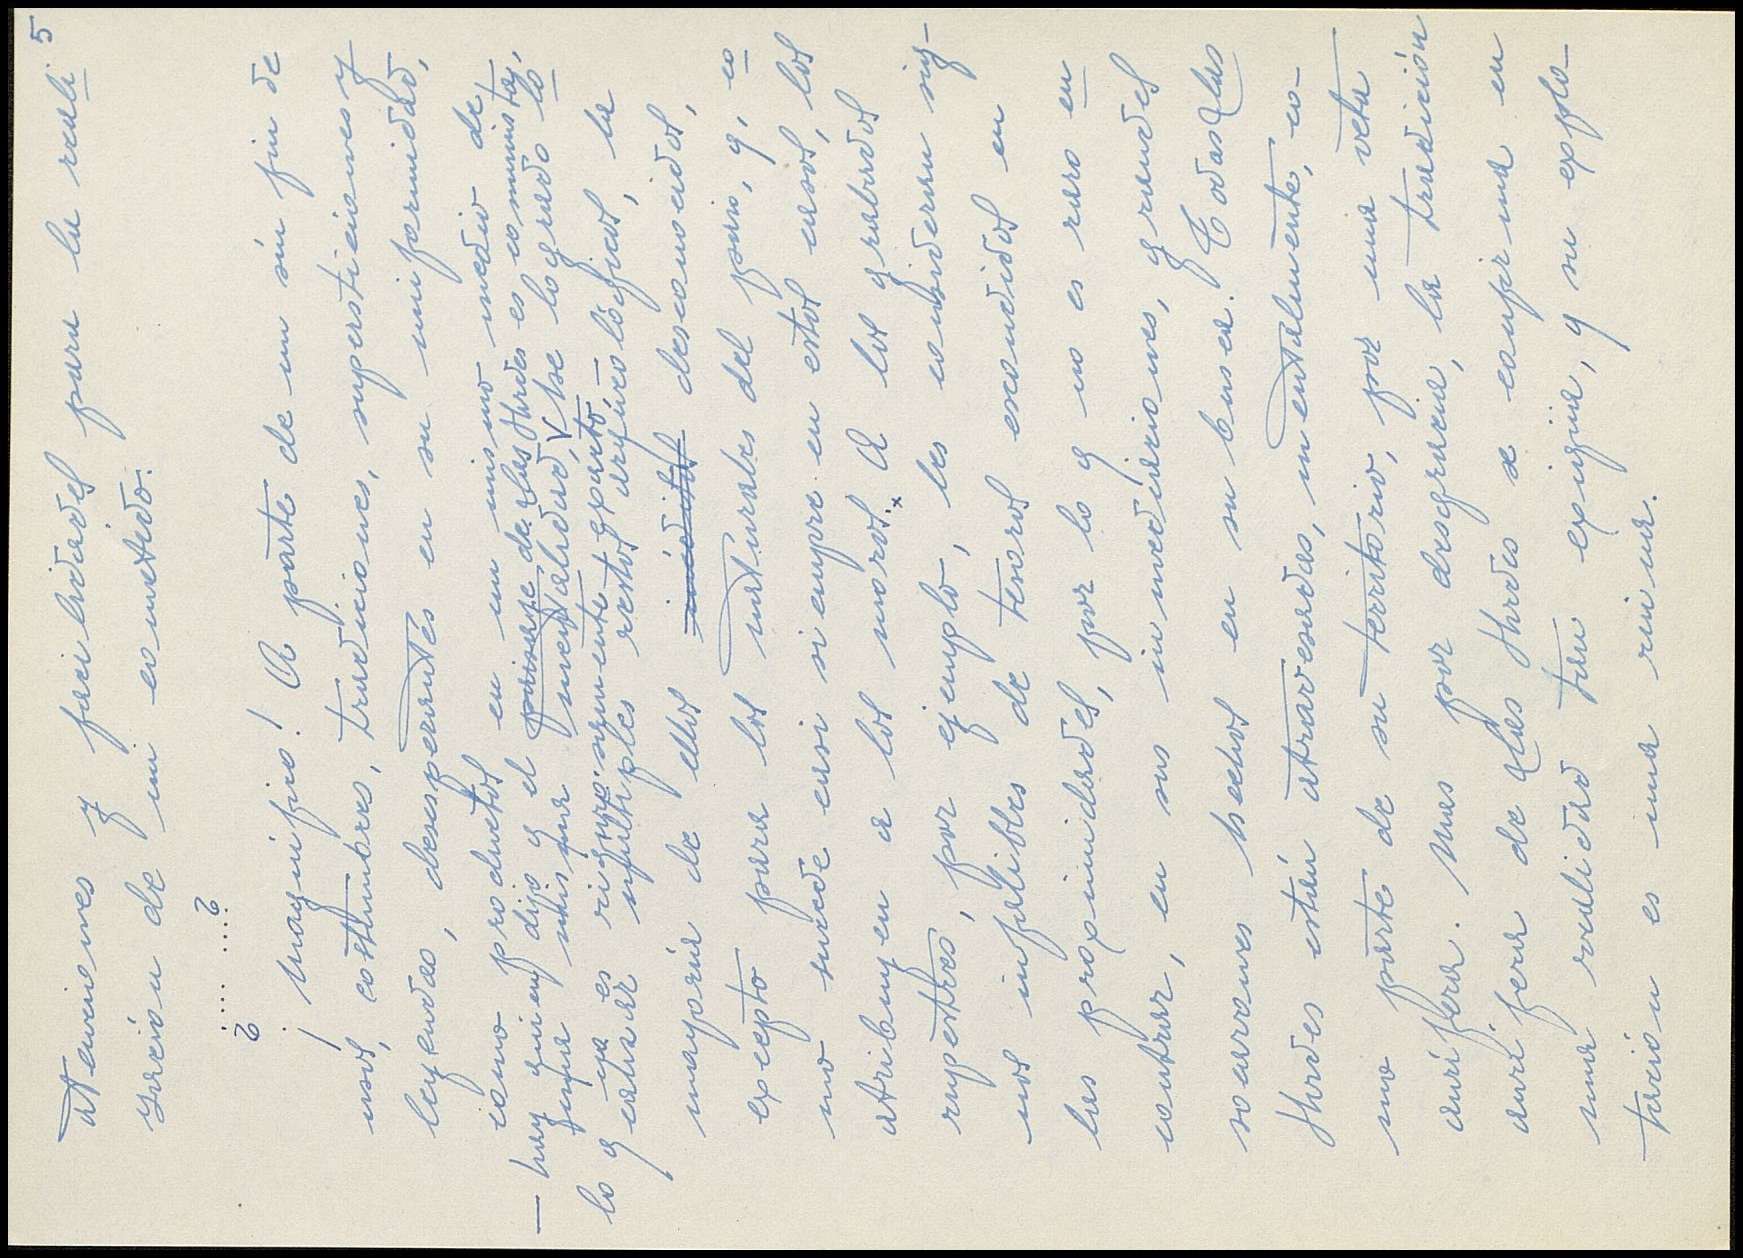 5
atenciones y facilidades para la reali
zación de mi cometido.
2 ..... .... 2
¡Magnífico! A parte de un sin fin de
usos, costumbres, tradiciones, supersticiones y
leyendas, desesperantes en su uniformidad,
como productos en un mismo medio de
— hay quien dijo q el paisaje de Las Hurdes es comunista,
una misma mentalidad, V he logrado lo
lo q ya es rigurosamente exparto,
q causar múltiples restos arqueológicos, la
mayoría de ellos inéditos desconocidos,
excepto para los naturales del país, q, co
mo sucede casi siempre en estos casos, los
atribuyen a los moros.x A los grabados
rupestres, por ejemplo, les consideran sig-
nos infalibles de tesoros escondidos en
las proximidades, por lo q no es raro en
contrar, en sus inmediaciones, grandes
socavones hechos en su busca. Todas Las
Hurdes están atravesadas, mentalmente, co-
mo parte de su territorio, por una veta
aurífera. Mas por desgracia, la tradición
aurífera de Las Hurdes se confirma en
una realidad tan exigüa, y su explo-
tación es una ruina.